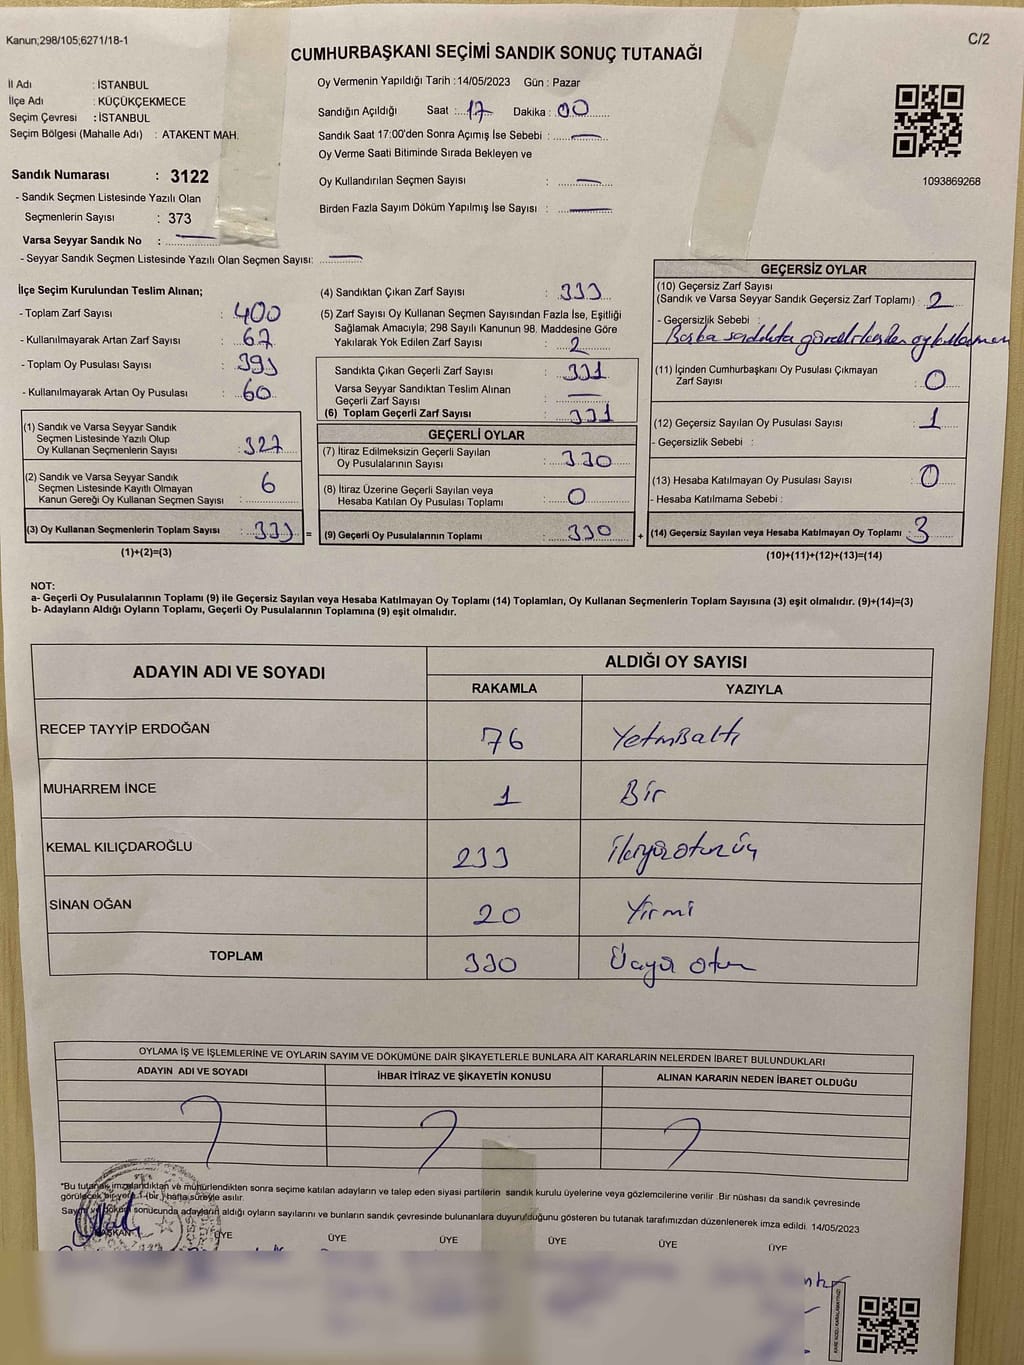 Kanun;298/105;6271/18-1
C/2
CUMHURBAŞKANI SEÇİMİ SANDIK SONUÇ TUTANAĞI
İl Adı : İSTANBUL
İlçe Adı : KÜÇÜKÇEKMECE
Seçim Çevresi : İSTANBUL
Seçim Bölgesi (Mahalle Adı) : ATAKENT MAH.
Oy Vermenin Yapıldığı Tarih :14/05/2023 Gün : Pazar
Sandığın Açıldığı Saat : 17 Dakika : 00
Sandık Saat 17:00'den Sonra Açımış İse Sebebi : —
Oy Verme Saati Bitiminde Sırada Bekleyen ve
Oy Kullandırılan Seçmen Sayısı : —
Birden Fazla Sayım Döküm Yapılmış İse Sayısı : —
1093869268
Sandık Numarası : 3122
- Sandık Seçmen Listesinde Yazılı Olan
Seçmenlerin Sayısı : 373
Varsa Seyyar Sandık No : —
- Seyyar Sandık Seçmen Listesinde Yazılı Olan Seçmen Sayısı: —
İlçe Seçim Kurulundan Teslim Alınan;
- Toplam Zarf Sayısı : 400
- Kullanılmayarak Artan Zarf Sayısı : 67
- Toplam Oy Pusulası Sayısı : 393
- Kullanılmayarak Artan Oy Pusulası : 60
(1) Sandık ve Varsa Seyyar Sandık
Seçmen Listesinde Yazılı Olup
Oy Kullanan Seçmenlerin Sayısı : 327
(2) Sandık ve Varsa Seyyar Sandık
Seçmen Listesinde Kayıtlı Olmayan
Kanun Gereği Oy Kullanan Seçmen Sayısı : 6
(3) Oy Kullanan Seçmenlerin Toplam Sayısı : 333 =
(1)+(2)=(3)
(4) Sandıktan Çıkan Zarf Sayısı : 333
(5) Zarf Sayısı Oy Kullanan Seçmen Sayısından Fazla İse, Eşitliği
Sağlamak Amacıyla; 298 Sayılı Kanunun 98. Maddesine Göre
Yakılarak Yok Edilen Zarf Sayısı : 2
Sandıkta Çıkan Geçerli Zarf Sayısı : 331
Varsa Seyyar Sandıktan Teslim Alınan
Geçerli Zarf Sayısı : —
(6) Toplam Geçerli Zarf Sayısı : 331
GEÇERLİ OYLAR
(7) İtiraz Edilmeksizin Geçerli Sayılan
Oy Pusulalarının Sayısı : 330
(8) İtiraz Üzerine Geçerli Sayılan veya
Hesaba Katılan Oy Pusulası Toplamı : 0
(9) Geçerli Oy Pusulalarının Toplamı : 330 +
GEÇERSİZ OYLAR
(10) Geçersiz Zarf Sayısı
(Sandık ve Varsa Seyyar Sandık Geçersiz Zarf Toplamı) : 2
- Geçersizlik Sebebi :
Başka sandıkta görevli
(11) İçinden Cumhurbaşkanı Oy Pusulası Çıkmayan
Zarf Sayısı : 0
(12) Geçersiz Sayılan Oy Pusulası Sayısı : 1
- Geçersizlik Sebebi :
(13) Hesaba Katılmayan Oy Pusulası Sayısı : 0
- Hesaba Katılmama Sebebi :
(14) Geçersiz Sayılan veya Hesaba Katılmayan Oy Toplamı : 3
(10)+(11)+(12)+(13)=(14)
NOT:
a- Geçerli Oy Pusulalarının Toplamı (9) ile Geçersiz Sayılan veya Hesaba Katılmayan Oy Toplamı (14) Toplamları, Oy Kullanan Seçmenlerin Toplam Sayısına (3) eşit olmalıdır. (9)+(14)=(3)
b- Adayların Aldığı Oyların Toplamı, Geçerli Oy Pusulalarının Toplamına (9) eşit olmalıdır.
ADAYIN ADI VE SOYADI
ALDIĞI OY SAYISI
RAKAMLA YAZIYLA
RECEP TAYYİP ERDOĞAN 76 Yetmişaltı
MUHARREM İNCE 1 Bir
KEMAL KILIÇDAROĞLU 233 İkiyüzotuzüç
SİNAN OĞAN 20 Yirmi
TOPLAM 330 Üçyüz otuz
OYLAMA İŞ VE İŞLEMLERİNE VE OYLARIN SAYIM VE DÖKÜMÜNE DAİR ŞİKAYETLERLE BUNLARA AİT KARARLARIN NELERDEN İBARET BULUNDUKLARI
ADAYIN ADI VE SOYADI İHBAR İTİRAZ VE ŞİKAYETİN KONUSU ALINAN KARARIN NEDEN İBARET OLDUĞU
*Bu tutanak imzalandıktan ve mühürlendikten sonra seçime katılan adayların ve talep eden siyasi partilerin sandık kurulu üyelerine veya gözlemcilerine verilir .Bir nüshası da sandık çevresinde
görülecek bir yere 1 (bir ) hafta süreyle asılır.
Sayım ve döküm sonucunda adayların aldığı oyların sayılarını ve bunların sandık çevresinde bulunanlara duyurulduğunu gösteren bu tutanak tarafımızdan düzenlenerek imza edildi. 14/05/2023
BAŞKAN ÜYE ÜYE ÜYE ÜYE ÜYE ÜYE
KARE KODU KARALAMAYINIZ!